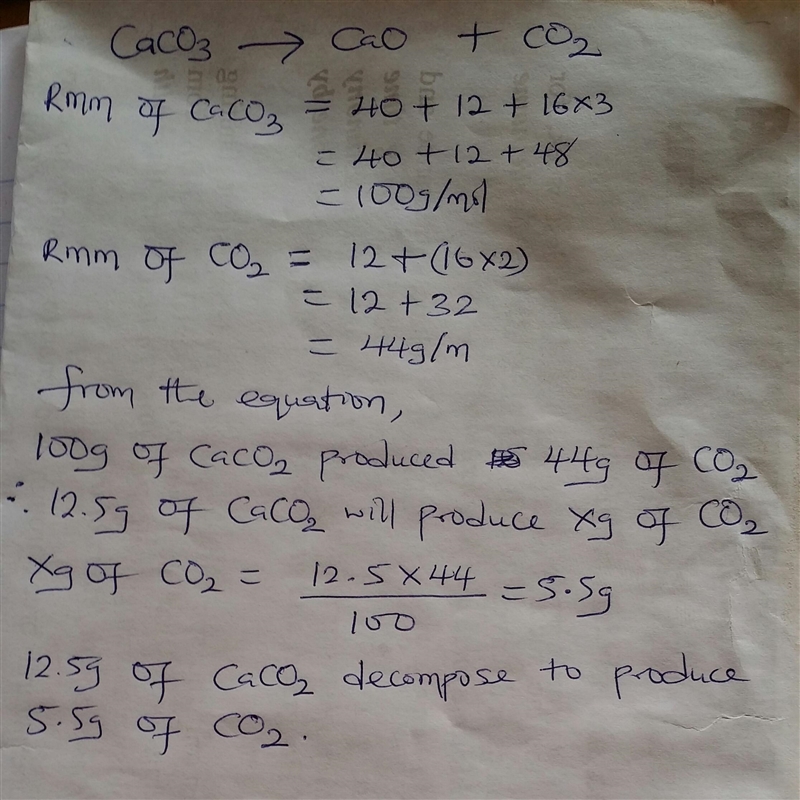 CaCO₃ → CaO + CO₂
Rmm of CaCO₃ = 40 + 12 + 16×3
= 40 + 12 + 48
= 100g/mol
Rmm of CO₂ = 12 + (16×2)
= 12 + 32
= 44g/m
from the equation,
100g of CaCO₂ produced 44g of CO₂
∴ 12.5g of CaCO₂ will produce Xg of CO₂
Xg of CO₂ = 12.5 × 44 / 100 = 5.5g
12.5g of CaCO₂ decompose to produce
5.5g of CO₂.